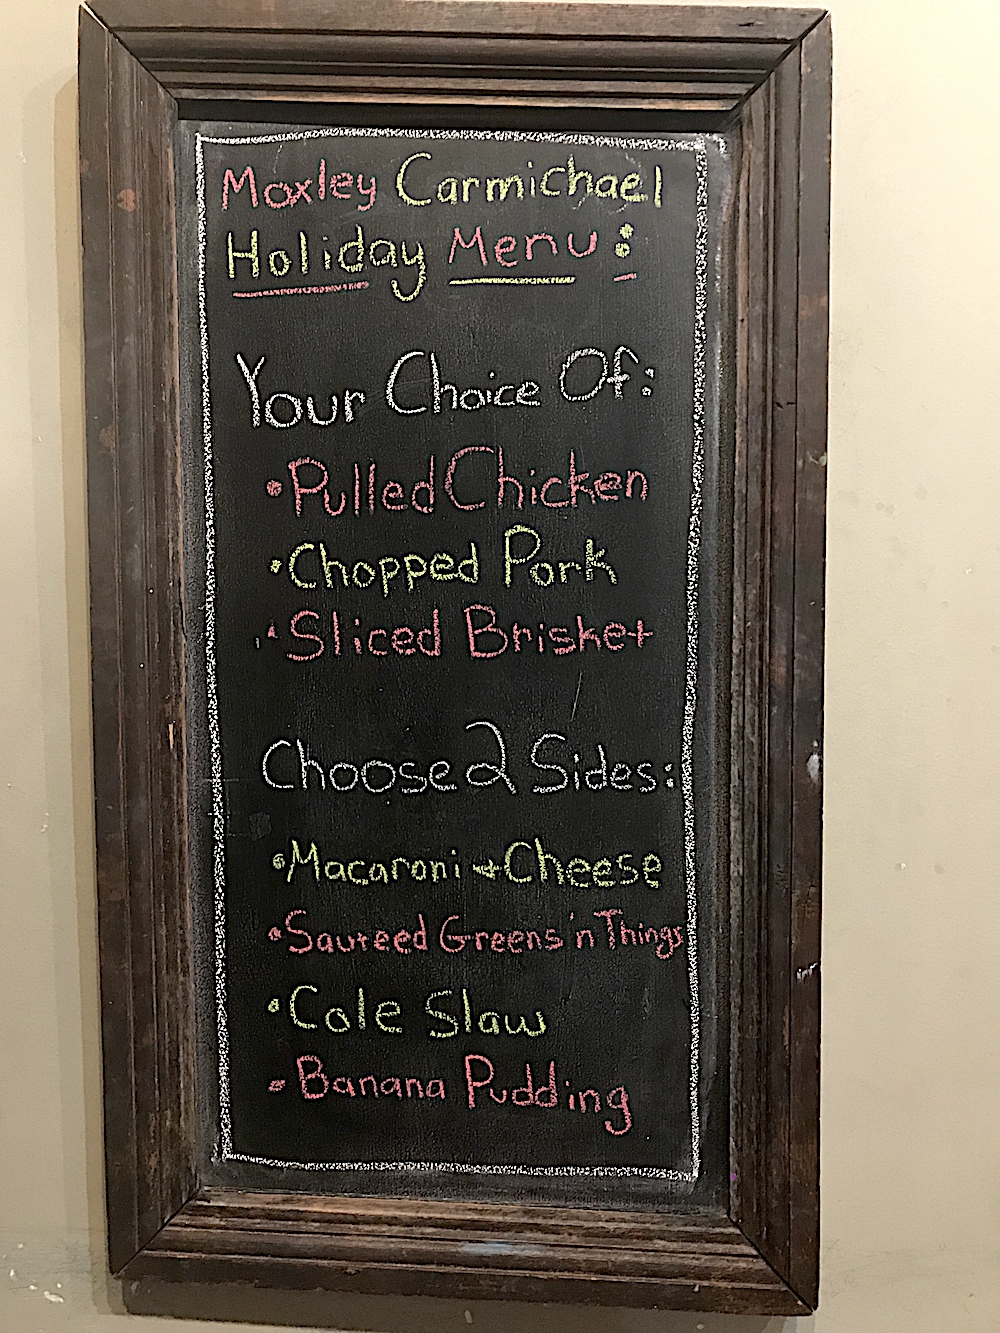 Moxley Carmichael
Holiday Menu:
Your Choice Of:
• Pulled Chicken
• Chopped Pork
• Sliced Brisket
Choose 2 Sides:
• Macaroni + Cheese
• Sauteed Greens 'n Things
• Cole Slaw
• Banana Pudding